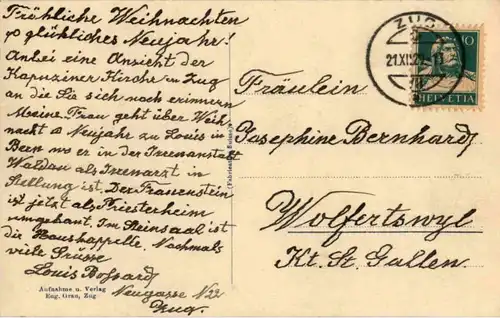 Fröhliche Weihnachten
& glückliches Neujahr!
Anbei eine Ansicht der
Kapuziner Kirche in Zug
an die Sie sich noch erinnern
Meine Frau geht über Weih-
nacht & Neujahr zu Louis in
Bern wo er in der Irrenanstalt
Waldau als Irrenarzt in
Stellung ist. Der Frauenstein
ist jetzt als Priesterheim
umgebaut. Im Steinsaal ist
die Hauskappelle. Nochmals
viele Grüsse
Louis Bossard
Neugasse N 22
Zug.
Aufnahme u. Verlag
Eug. Grau, Zug
ZUG
21.XII.
10
HELVETIA
Fräulein
Josephine Bernhard
Wolfertswyl
Kt. St. Gallen.